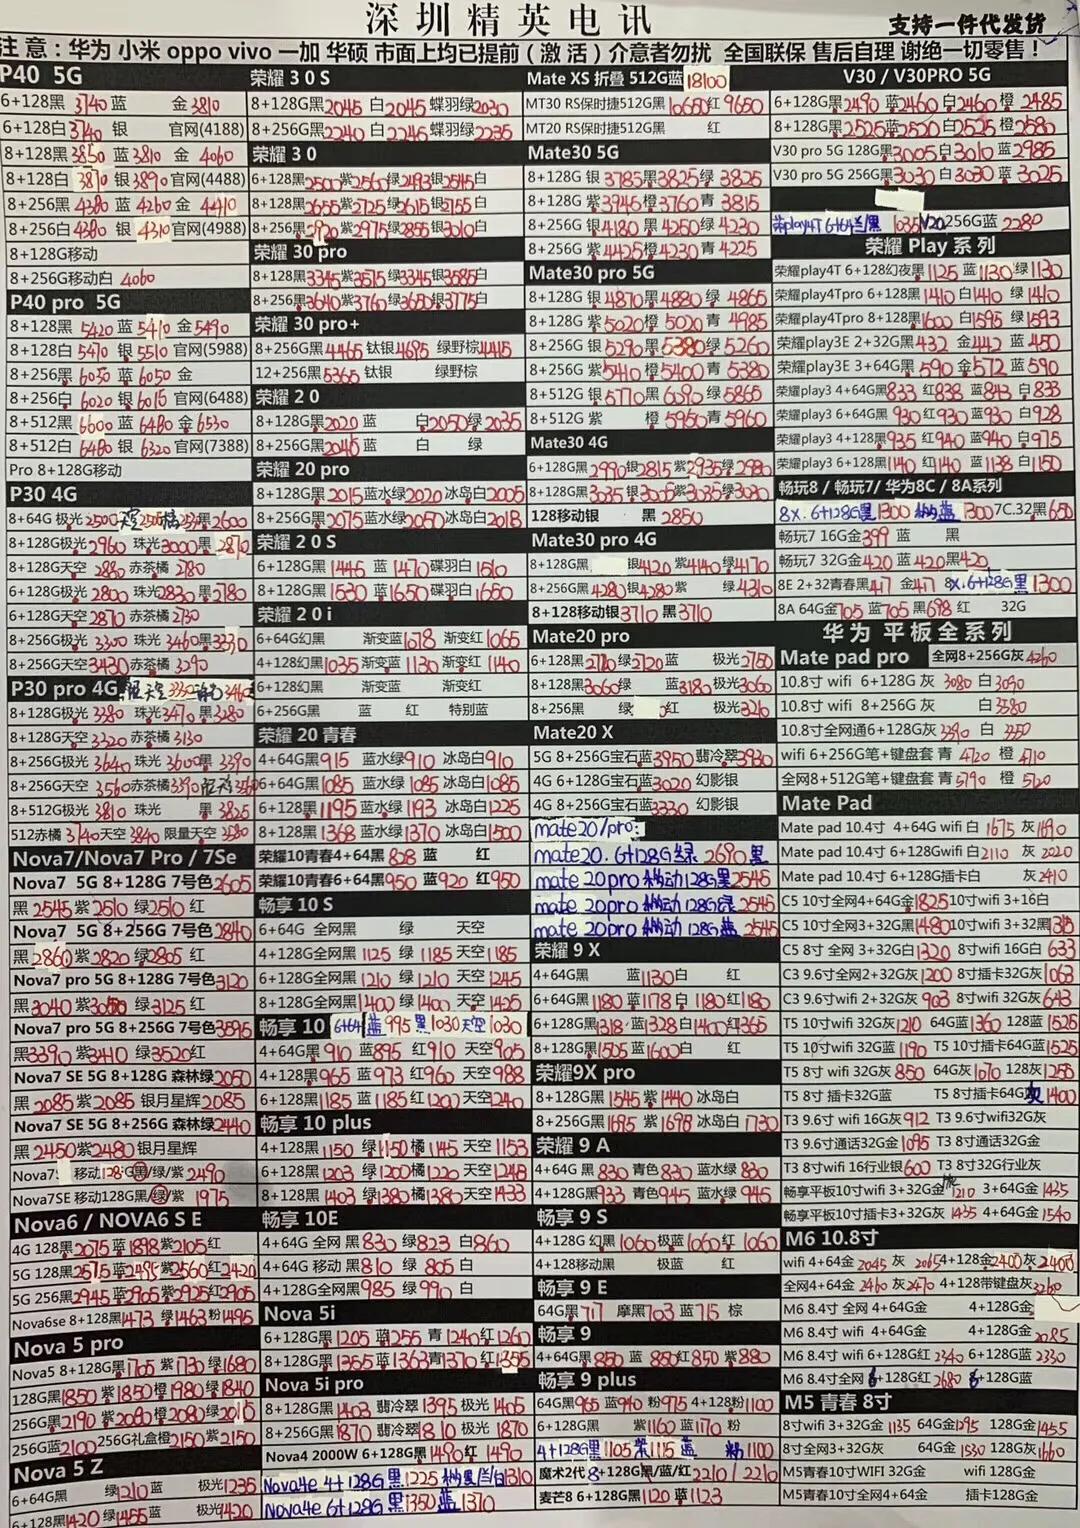 深圳精英电讯
支持一件代发货
注 意：华为 小米 oppo vivo 一加 华硕 市面上均已提前（激 活）介意者勿扰 全国联保 售后自理 谢绝一切零售！
P40 5G
6+128黑 3740 蓝 金 3810
6+128白 3740 银 官网(4188)
8+128黑 3850 蓝 3810 金 4060
8+128白 3870 银 3890 官网(4488)
8+256黑 4280 蓝 4260 金 4410
8+256白 4280 银 4310 官网(4988)
8+128G移动
8+256G移动白 4060
P40 pro 5G
8+128黑 5420 蓝 5410 金 5490
8+128白 5470 银 5510 官网(5988)
8+256黑 6050 蓝 6050 金
8+256白 6020 银 6015 官网(6488)
8+512黑 6600 蓝 6480 金 6530
8+512白 6480 银 6320 官网(7388)
Pro 8+128G移动
P30 4G
8+64G 极光 2500 黑 2600
8+128G极光 2960 珠光 3000 黑 2870
8+128G天空 2880 赤茶橘 2780
6+128G极光 2800 珠光 2830 黑 2780
6+128G天空 2870 赤茶橘 2730
8+256G极光 3300 珠光 3460 黑 3330
8+256G天空 3430 赤茶橘 3290
P30 pro 4G
8+128G极光 3380 珠光 3470 黑 3280
8+128G天空 3320 赤茶橘 3130
8+256G极光 3640 珠光 3600 黑 3390
8+256G天空 3560 赤茶橘 3390
8+512G极光 3810 珠光 黑 3825
512赤橘 3740 天空 3840 限量天空
Nova7/Nova7 Pro / 7Se
Nova7 5G 8+128G 7号色 2605
黑 2545 紫 2510 绿 2510 红
Nova7 5G 8+256G 7号色 2840
黑 2860 紫 2820 绿 2805 红
Nova7 pro 5G 8+128G 7号色 3120
黑 3040 紫 3050 绿 3125 红
Nova7 pro 5G 8+256G 7号色 3595
黑 3390 紫 3410 绿 3520 红
Nova7 SE 5G 8+128G 森林绿 2050
黑 2085 紫 2085 银月星辉 2085
Nova7 SE 5G 8+256G 森林绿 2440
黑 2450 紫 2480 银月星辉
移动128G黑/绿/紫 2490
Nova7SE 移动128G黑/绿/紫 1975
Nova6 / NOVA6 S E
4G 128黑 2075 蓝 1898 紫 2105 红
5G 128黑 2575 蓝 2495 紫 2560 红 2420
5G 256黑 2945 蓝 2905 紫 2925 红 2905
Nova6se 8+128黑 1473 绿 1463 粉 1495
Nova 5 pro
Nova5 8+128G黑 1705 紫 1730 绿 1680
128G黑 1850 紫 1850 橙 1980 绿 1840
256G黑 2190 紫 2080 橙 2080 绿 2015
256G蓝 2100 256G礼盒橙 2150 紫 2150
Nova 5 Z
6+64G黑 绿 1210 蓝 极光 1235
6+128黑 1420 绿 1455 蓝 极光 1420
荣耀 3 0 S
8+128G黑 2045 白 2045 蝶羽绿 2030
8+256G黑 2240 白 2245 蝶羽绿 2235
荣耀 3 0
6+128黑 2500 紫 2560 绿 2493 银 2545 白
8+128黑 2655 紫 2725 绿 2615 银 2755 白
8+256黑 2920 紫 2975 绿 2855 银 3010 白
荣耀 30 pro
8+128黑 3345 紫 3575 绿 3345 银 3585 白
8+256黑 3640 紫 3760 绿 3650 银 3775 白
荣耀 30 pro+
8+256G黑 4465 钛银 4695 绿野棕 4415
12+256黑 5365 钛银 绿野棕
荣耀 2 0
8+128G黑 2020 蓝 白 2050 绿 2035
8+256G黑 2045 蓝 白 绿
荣耀 20 pro
8+128G黑 2015 蓝水绿 2020 冰岛白 2005
8+256G黑 2075 蓝水绿 2050 冰岛白 2018
荣耀 2 0 S
6+128G黑 1445 蓝 1470 蝶羽白 1510
8+128G黑 1530 蓝 1650 蝶羽白 1650
荣耀 2 0 i
6+64G幻黑 渐变蓝 1078 渐变红 1065
4+128幻黑 1035 渐变蓝 1130 渐变红 1140
6+128幻黑 渐变蓝 渐变红
6+256G黑 蓝 红 特别蓝
荣耀 20 青春
4+64G黑 915 蓝水绿 910 冰岛白 910
6+64G黑 1085 蓝水绿 1085 冰岛白 1085
6+128黑 1195 蓝水绿 1193 冰岛白 1225
8+128黑 1368 蓝水绿 1370 冰岛白 1500
荣耀10青春4+64黑 828 蓝 红
荣耀10青春6+64黑 950 蓝 920 红 950
畅享 10 S
6+64G 全网黑 绿 天空
4+128G全网黑 1125 绿 1185 天空 1185
6+128G全网黑 1210 绿 1210 天空 1245
8+128G全网黑 1400 绿 1400 天空 1425
畅享 10 6+64 蓝 995 黑 1030 天空 1030
4+64G黑 910 蓝 895 红 910 天空 905
4+128黑 965 蓝 973 红 960 天空 988
6+128黑 1185 蓝 1185 红 1200 天空 1240
畅享 10 plus
4+128黑 1150 绿 1150 橘 1145 天空 1153
6+128黑 1203 绿 1200 橘 1220 天空 1248
8+128黑 1403 绿 1380 橘 1380 天空 1433
畅享 10E
4+64G 全网 黑 830 绿 823 白 860
4+64G 移动 黑 810 绿 805 白
4+128G全网黑 985 绿 990 白
Nova 5i
6+128G黑 1205 蓝 1255 青 1240 红 1260
8+128G黑 1355 蓝 1363 青 1370 红 1355
Nova 5i pro
8+128G黑 1403 翡冷翠 1395 极光 1405
8+256G黑 1870 翡冷翠 1810 极光 1870
Nova4 2000W 6+128G黑 1490 红 1490
Nova4e 4+128G 黑 1225 1310
Nova4e 6+128G 黑 1350 蓝 1370
Mate XS 折叠 512G蓝 18100
MT30 RS保时捷512G黑 10650 红 9650
MT20 RS保时捷512G黑 红
Mate30 5G
8+128G 银 3785 黑 3825 绿 3825
8+128G 紫 3945 橙 3760 青 3815
8+256G 银 4180 黑 4250 绿 4230
8+256G 紫 4425 橙 4230 青 4225
Mate30 pro 5G
8+128G 银 4870 黑 4880 绿 4865
8+128G 紫 5020 橙 5020 青 4985
8+256G 银 5290 黑 5380 绿 5260
8+256G 紫 5410 橙 5400 青 5380
8+512G 银 5770 黑 6090 绿 5865
8+512G 紫 橙 5950 青 5960
Mate30 4G
6+128G黑 2990 银 2815 紫 2935 绿 2980
8+128G黑 3035 银 3005 紫 3035 绿 3080
128移动银 黑 2850
Mate30 pro 4G
8+128G黑 银 4120 紫 4140 绿 4170
8+256G黑 4280 银 4280 紫 绿 4310
8+128移动银 3710 黑 3710
Mate20 pro
6+128黑 2710 绿 2720 蓝 极光 2750
8+128黑 3060 绿 蓝 3180 极光 3060
8+256黑 绿 红 极光 3210
Mate20 X
5G 8+256G宝石蓝 3950 翡冷翠 3930
4G 6+128G宝石蓝 3020 幻影银
4G 8+256G宝石蓝 3330 幻影银
mate20/pro:
mate20. 6+128G 绿 2690 黑
mate 20pro 移动 128G黑 2545
mate 20pro 移动 128G绿 2545
mate 20pro 移动 128G 蓝 2545
荣耀 9 X
4+64G黑 蓝 1130 白 红
6+64G黑 1180 蓝 1178 白 1180 红 1180
6+128G黑 1318 蓝 1328 白 1400 红 1365
8+128G黑 1505 蓝 1600 白 红
荣耀9X pro
8+128G黑 1545 紫 1440 冰岛白
8+256G黑 1695 紫 1698 冰岛白 1730
荣耀 9 A
4+64G 黑 830 青色 830 蓝水绿 830
4+128G黑 933 青色 945 蓝水绿 945
畅享 9 S
4+128G 幻黑 1060 极蓝 1060 红 1060
4+128移动黑 极蓝 红
畅享 9 E
64G黑 717 摩黑 703 蓝 715 棕
畅享 9
4+64G黑 850 蓝 850 红 850 紫 880
畅享 9 plus
64G黑 965 蓝 940 粉 975 4+128粉 1100
6+128G黑 紫 1160 蓝 1170 粉
4+128G黑 1105 紫 1115 蓝 粉 1100
魔术2代 8+128G黑/蓝/红 2210 / 2210
麦芒8 6+128G黑 1120 蓝 1123
V30 / V30PRO 5G
6+128G黑 2490 蓝 2460 白 2460 橙 2485
8+128G黑 2525 蓝 2520 白 2525 橙 2580
V30 pro 5G 128G黑 3005 白 3010 蓝 2985
V30 pro 5G 256G黑 3030 白 3030 蓝 3025
荣play4T 6+64兰/黑 1035 V20 256G蓝 2280
荣耀 Play 系 列
荣耀play4T 6+128幻夜黑 1125 蓝 1130 绿 1130
荣耀play4Tpro 6+128黑 1410 白 1410 绿 1410
荣耀play4Tpro 8+128黑 1600 白 1595 绿 1593
荣耀play3E 2+32G黑 432 金 442 蓝 450
荣耀play3E 3+64G黑 590 金 572 蓝 590
荣耀play3 4+64G黑 833 红 838 蓝 843 白 833
荣耀play3 6+64G黑 930 红 930 蓝 930 白 928
荣耀play3 4+128黑 935 红 940 蓝 940 白 975
荣耀play3 6+128黑 1140 红 1140 蓝 1138 白 1150
畅玩8 / 畅玩7/ 华为8C / 8A系列
8X. 6+128G黑 1300 蓝 1300 7C.32黑 650
畅玩7 16G金 399 蓝 黑
畅玩7 32G金 420 蓝 420 黑 420
8E 2+32青春黑 417 金 417 8X.6+128G黑 1300
8A 64G金 705 蓝 705 黑 698 红 32G
华为 平板全系列
Mate pad pro 全网8+256G灰 4260
10.8寸 wifi 6+128G 灰 3080 白 3090
10.8寸 wifi 8+256G 灰 白 3580
10.8寸全网通6+128G灰 3390 白
wifi 6+256G笔+键盘套 青 4720 橙 4710
全网8+512G笔+键盘套 青 5790 橙 5120
Mate Pad
Mate pad 10.4寸 4+64G wifi 白 1675 灰 1690
Mate pad 10.4寸 6+128Gwifi白 2110 灰 2020
Mate pad 10.4寸 6+128G插卡白 灰 2410
C5 10寸全网4+64G金 1825 10寸wifi 3+16白
C5 10寸全网3+32G黑 1480 10寸wifi 3+32黑
C5 8寸 全网 3+32G白 1320 8寸wifi 16G白 633
C3 9.6寸全网2+32G灰 1200 8寸插卡32G灰 1063
C3 9.6寸wifi 2+32G灰 903 8寸wifi 32G灰 643
T5 10寸wifi 32G灰 1210 64G蓝 1360 128蓝 1525
T5 10寸wifi 32G蓝 1190 T5 10寸插卡64G蓝 1525
T5 8寸 wifi 32G灰 850 64G灰 1070 128灰 1250
T5 8寸 插卡32G蓝 T5 8寸 插卡64G灰 1400
T3 9.6寸 wifi 16G灰 912 T3 9.6寸wifi32G灰
T3 9.6寸通话32G金 1095 T3 8寸通话32G金
T3 8寸wifi 16行业银 600 T3 8寸32G行业灰
畅享平板10寸wifi 3+32G金 1210 3+64G金 1435
畅享平板10寸wifi 3+32G灰 1435 4+64G金 1540
M6 10.8寸
wifi 4+64金 2045 灰 2065 4+128金 2400 灰 2400
全网4+64金 2460 灰 2470 4+128带键盘灰 3260
M6 8.4寸 全网 4+64G金 4+128G金
M6 8.4寸 wifi 4+64G金 4+128G金 2085
M6 8.4寸 wifi 6+128G红 2340 6+128G蓝 2330
M6 8.4寸全网 6+128G红 2680 6+128G蓝
M5 青春 8寸
8寸wifi 3+32G金 1135 64G金 1295 128G金 1455
8寸全网3+32G灰 64G金 1530 128G灰 1660
M5青春10寸WIFI 32G金 wifi 128G金
M5青春10寸全网4+64金 插卡128G金